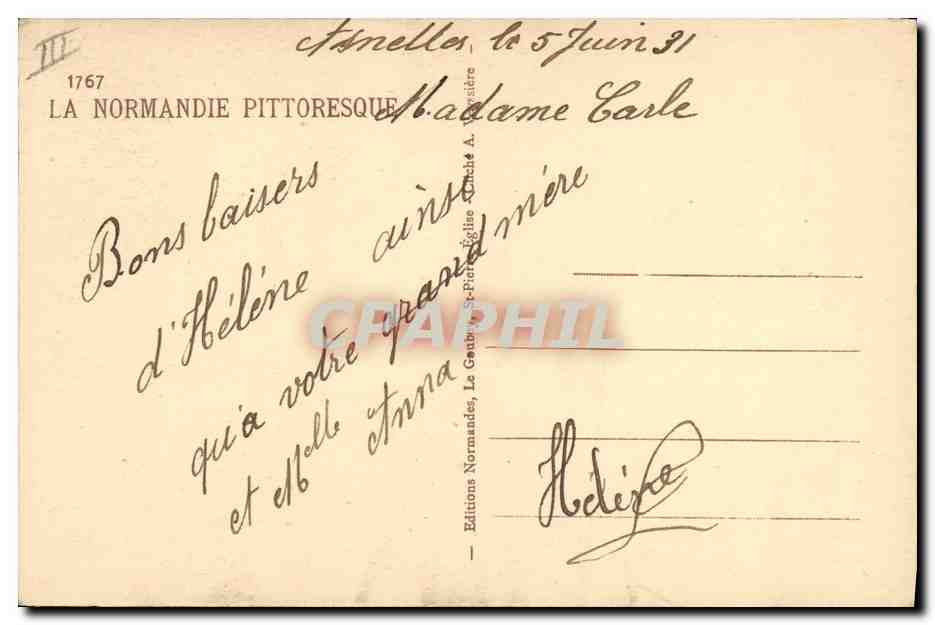 III
Asnelles, le 5 Juin 31
1767
LA NORMANDIE PITTORESQUE
Madame Carle
Bons baisers
d'Hélène ainsi
qu'a votre grand mére
et Melle Anna
Hélène
— Editions Normandes, Le Goubey, St-Pierre-Église - Cliché A.
CPAPHIL